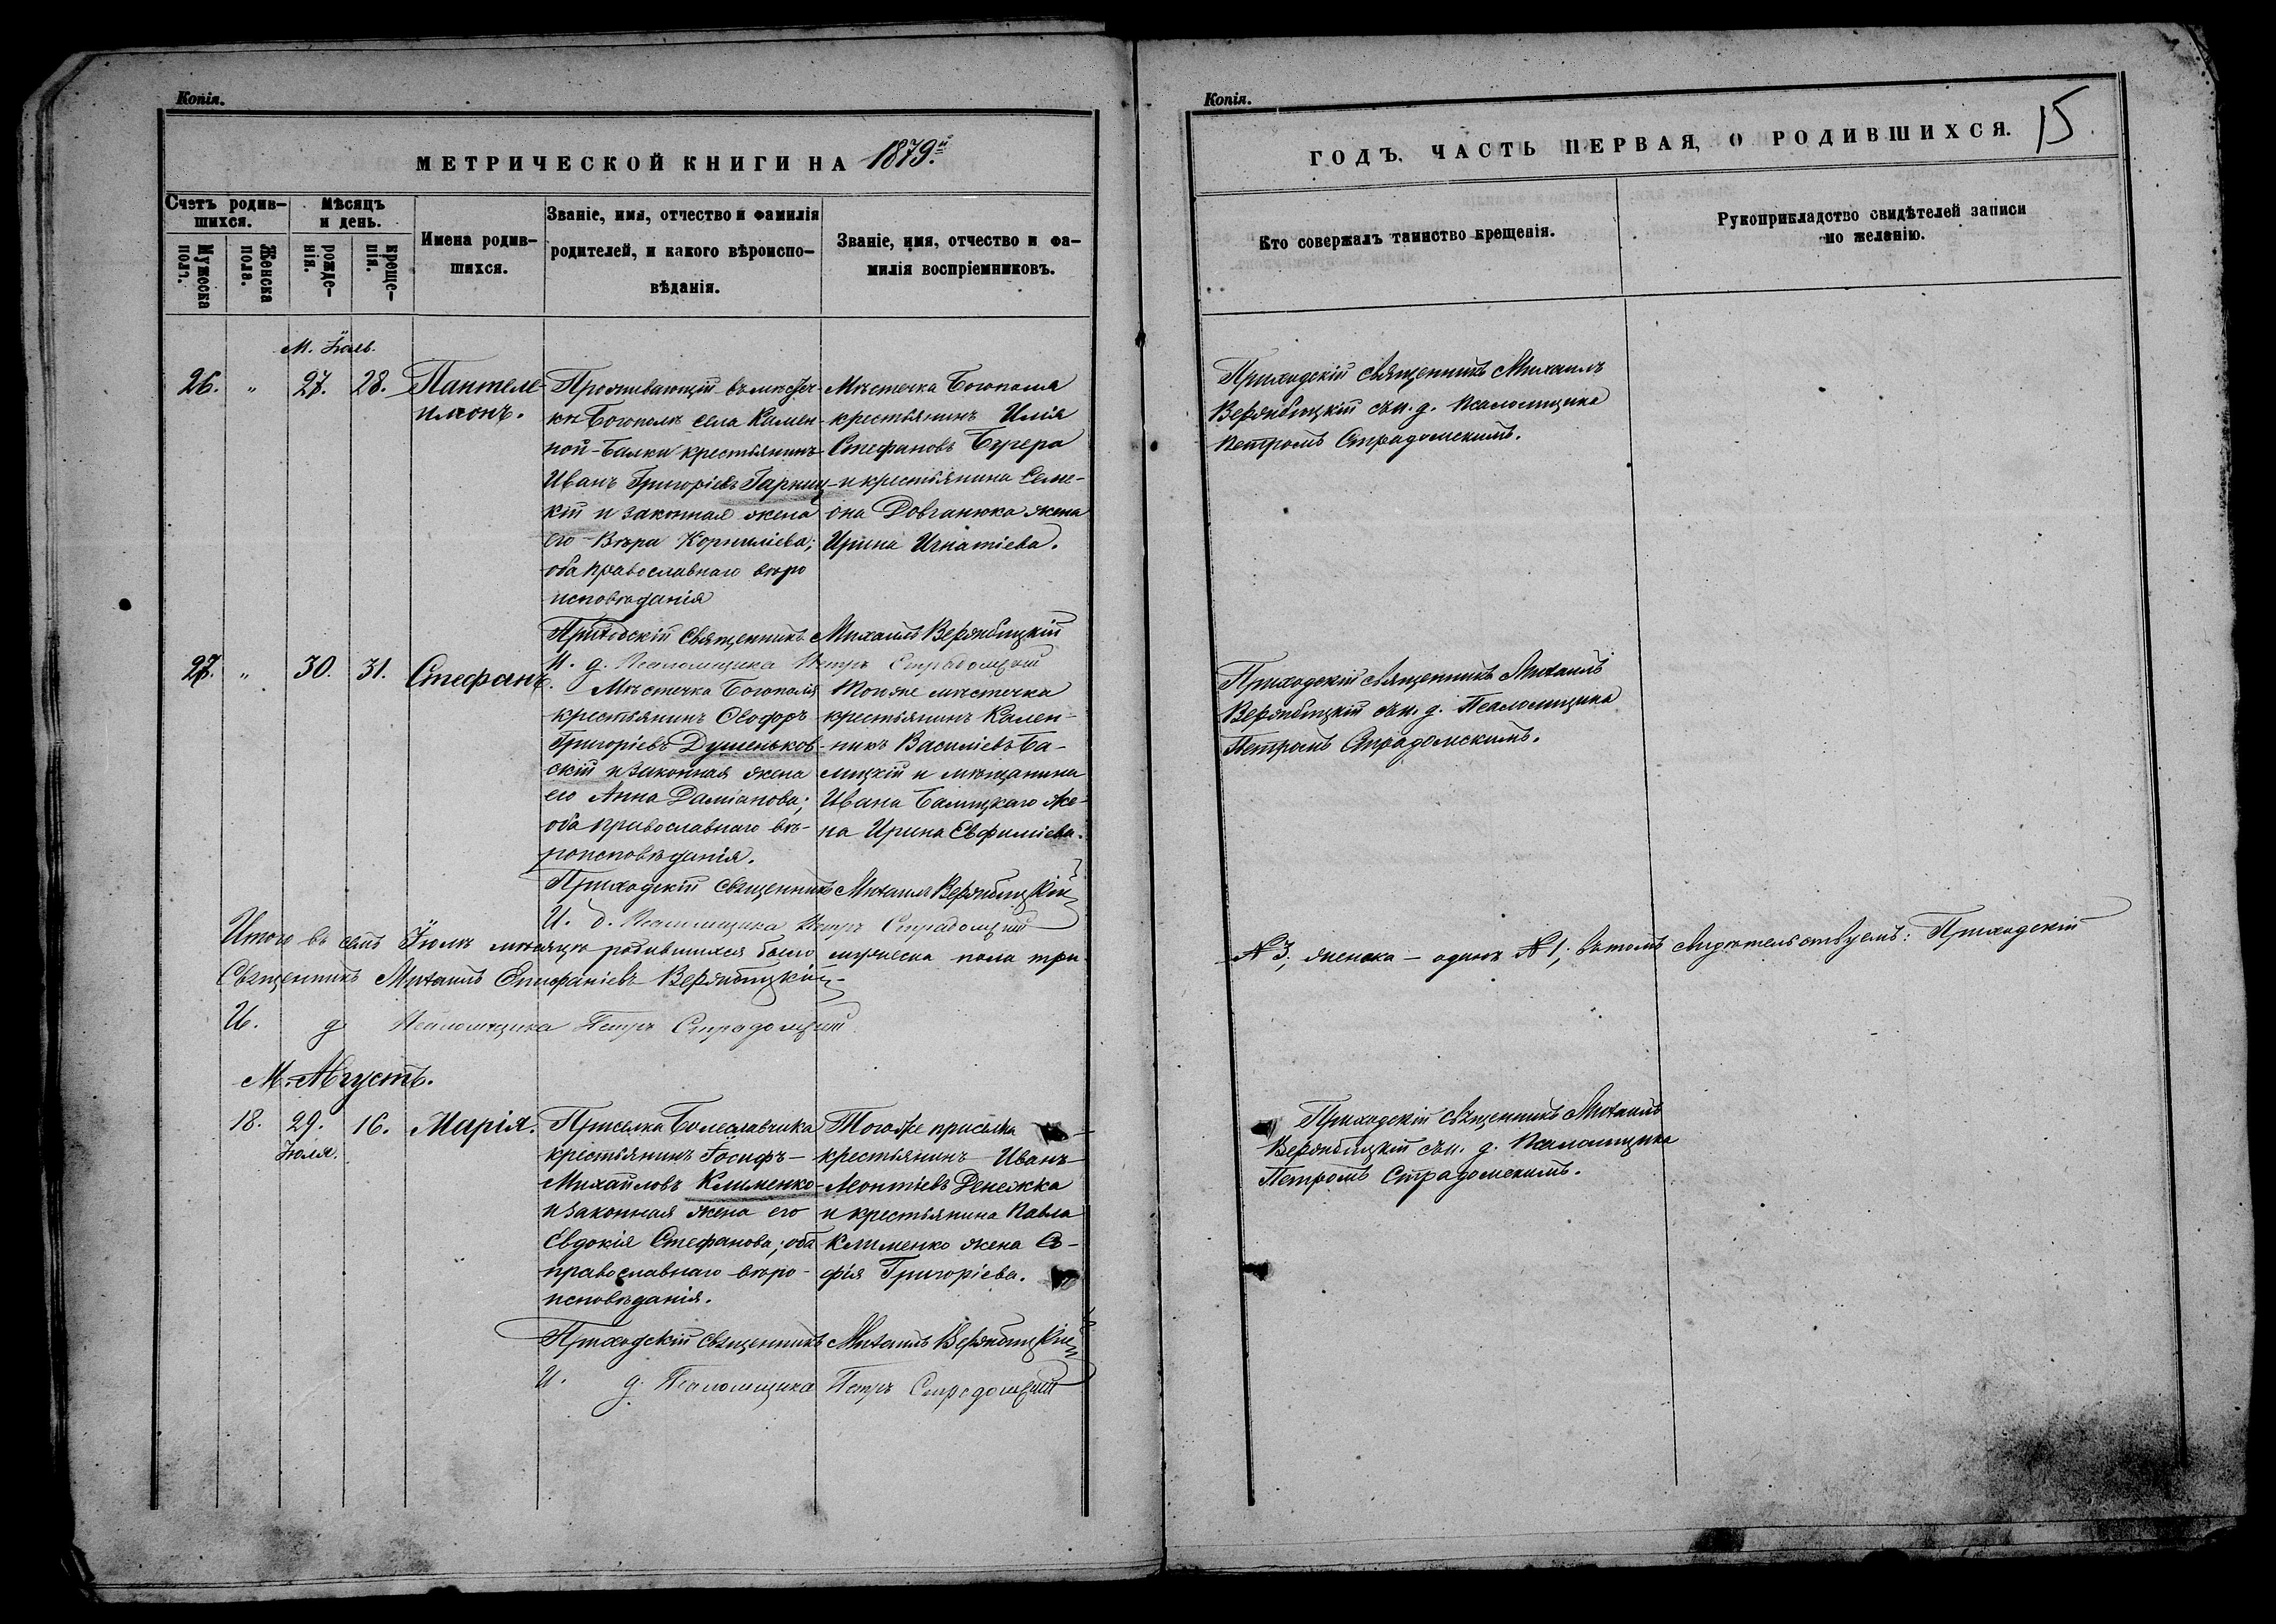 Копія.
МЕТРИЧЕСКОЙ КНИГИ НА 1879й
Счетъ родив-
шихся.
Мужеска
полъ.
Женска
пола.
Мѣсяцъ
и день.
рожде-
нія.
креще-
нія.
Имена родив-
шихся.
Званіе, имя, отчество и фамилія
родителей, и какого вѣроиспо-
вѣданія.
Званіе, имя, отчество и фа-
милія воспріемниковъ.
М. Іюль.
26. " 27. 28. Пантеле-
имонъ.
Проживающій въ мѣстеч-
кѣ Богополѣ села Камен-
ной-Балки крестьянинъ
Иванъ Григоріевъ Гарниц-
кій и законная жена
его Вѣра Корниліева;
оба православнаго вѣро
исповѣданія
Мѣстечка Богополя
крестьянинъ Илія
Стефановъ Бугера
и крестьянина Семе-
она Довганюка жена
Ирина Игнатіева.
Приходскій Священникъ Михаилъ Вержбицкій
И. д. Псаломщика Петръ Страдомскій
27. " 30. 31. Стефанъ.
Мѣстечка Богополя
крестьянинъ Ѳеофоръ
Григоріевъ Душеньков-
скій и законная жена
его Анна Даміанова;
оба православнаго вѣ-
роисповѣданія.
Тоиже мѣстечка
крестьянинъ Кален-
никъ Василіевъ Ба-
лицкій и мѣщанина
Ивана Балицкаго же-
на Ирина Евфиміева.
Приходскій Священникъ Михаилъ Вержбицкій
И. д. Псаломщика Петръ Страдомскій
Итого въ семъ Іюлѣ мѣсяцѣ родившихся было мужеска пола три
Священникъ Михаилъ Епифаніевъ Вержбицкій
И. д Псаломщика Петръ Страдомскій
М. Августъ.
18. 29. 16. Марія.
Іюля.
Приселка Болеславчика
крестьянинъ Іосифъ
Михайловъ Клименко
и законная жена его
Евдокія Стефанова; оба
православнаго вѣро-
исповѣданія.
Того же приселка
крестьянинъ Иванъ
Леонтіевъ Денежка
и крестьянина Павла
Клименко жена Со-
фія Григоріева.
Приходскій Священникъ Михаилъ Вержбицкій
И. д. Псаломщика Петръ Страдомскій
Копія.
ГОДЪ, ЧАСТЬ ПЕРВАЯ, О РОДИВШИХСЯ.
15.
Кто совержалъ таинство крещенія.
Рукоприкладство свидѣтелей записи
по желанію.
Приходскій священникъ Михаилъ
Вержбицкій съ и. д. псаломщика
Петромъ Страдомскимъ.
Приходскій священникъ Михаилъ
Вержбицкій съ и. д. Псаломщика
Петромъ Страдомскимъ.
№ 3; женска – одинъ № 1; въ томъ свидѣтельствуемъ: Приходскій
Приходскій священникъ Михаилъ
Вержбицкій съ и. д. Псаломщика
Петромъ Страдомскимъ.